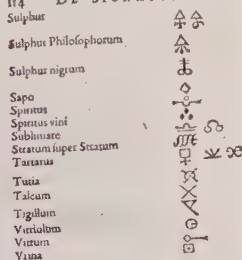 114
Sulphur
Sulphur Philosophorum
Sulphur nigrum
Sapo
Spiritus
Spiritus vini
Sublimare
Stratum super Stratum
Tartarus
Tutia
Talcum
Tigillum
Vitriolum
Vitrum
Vrina